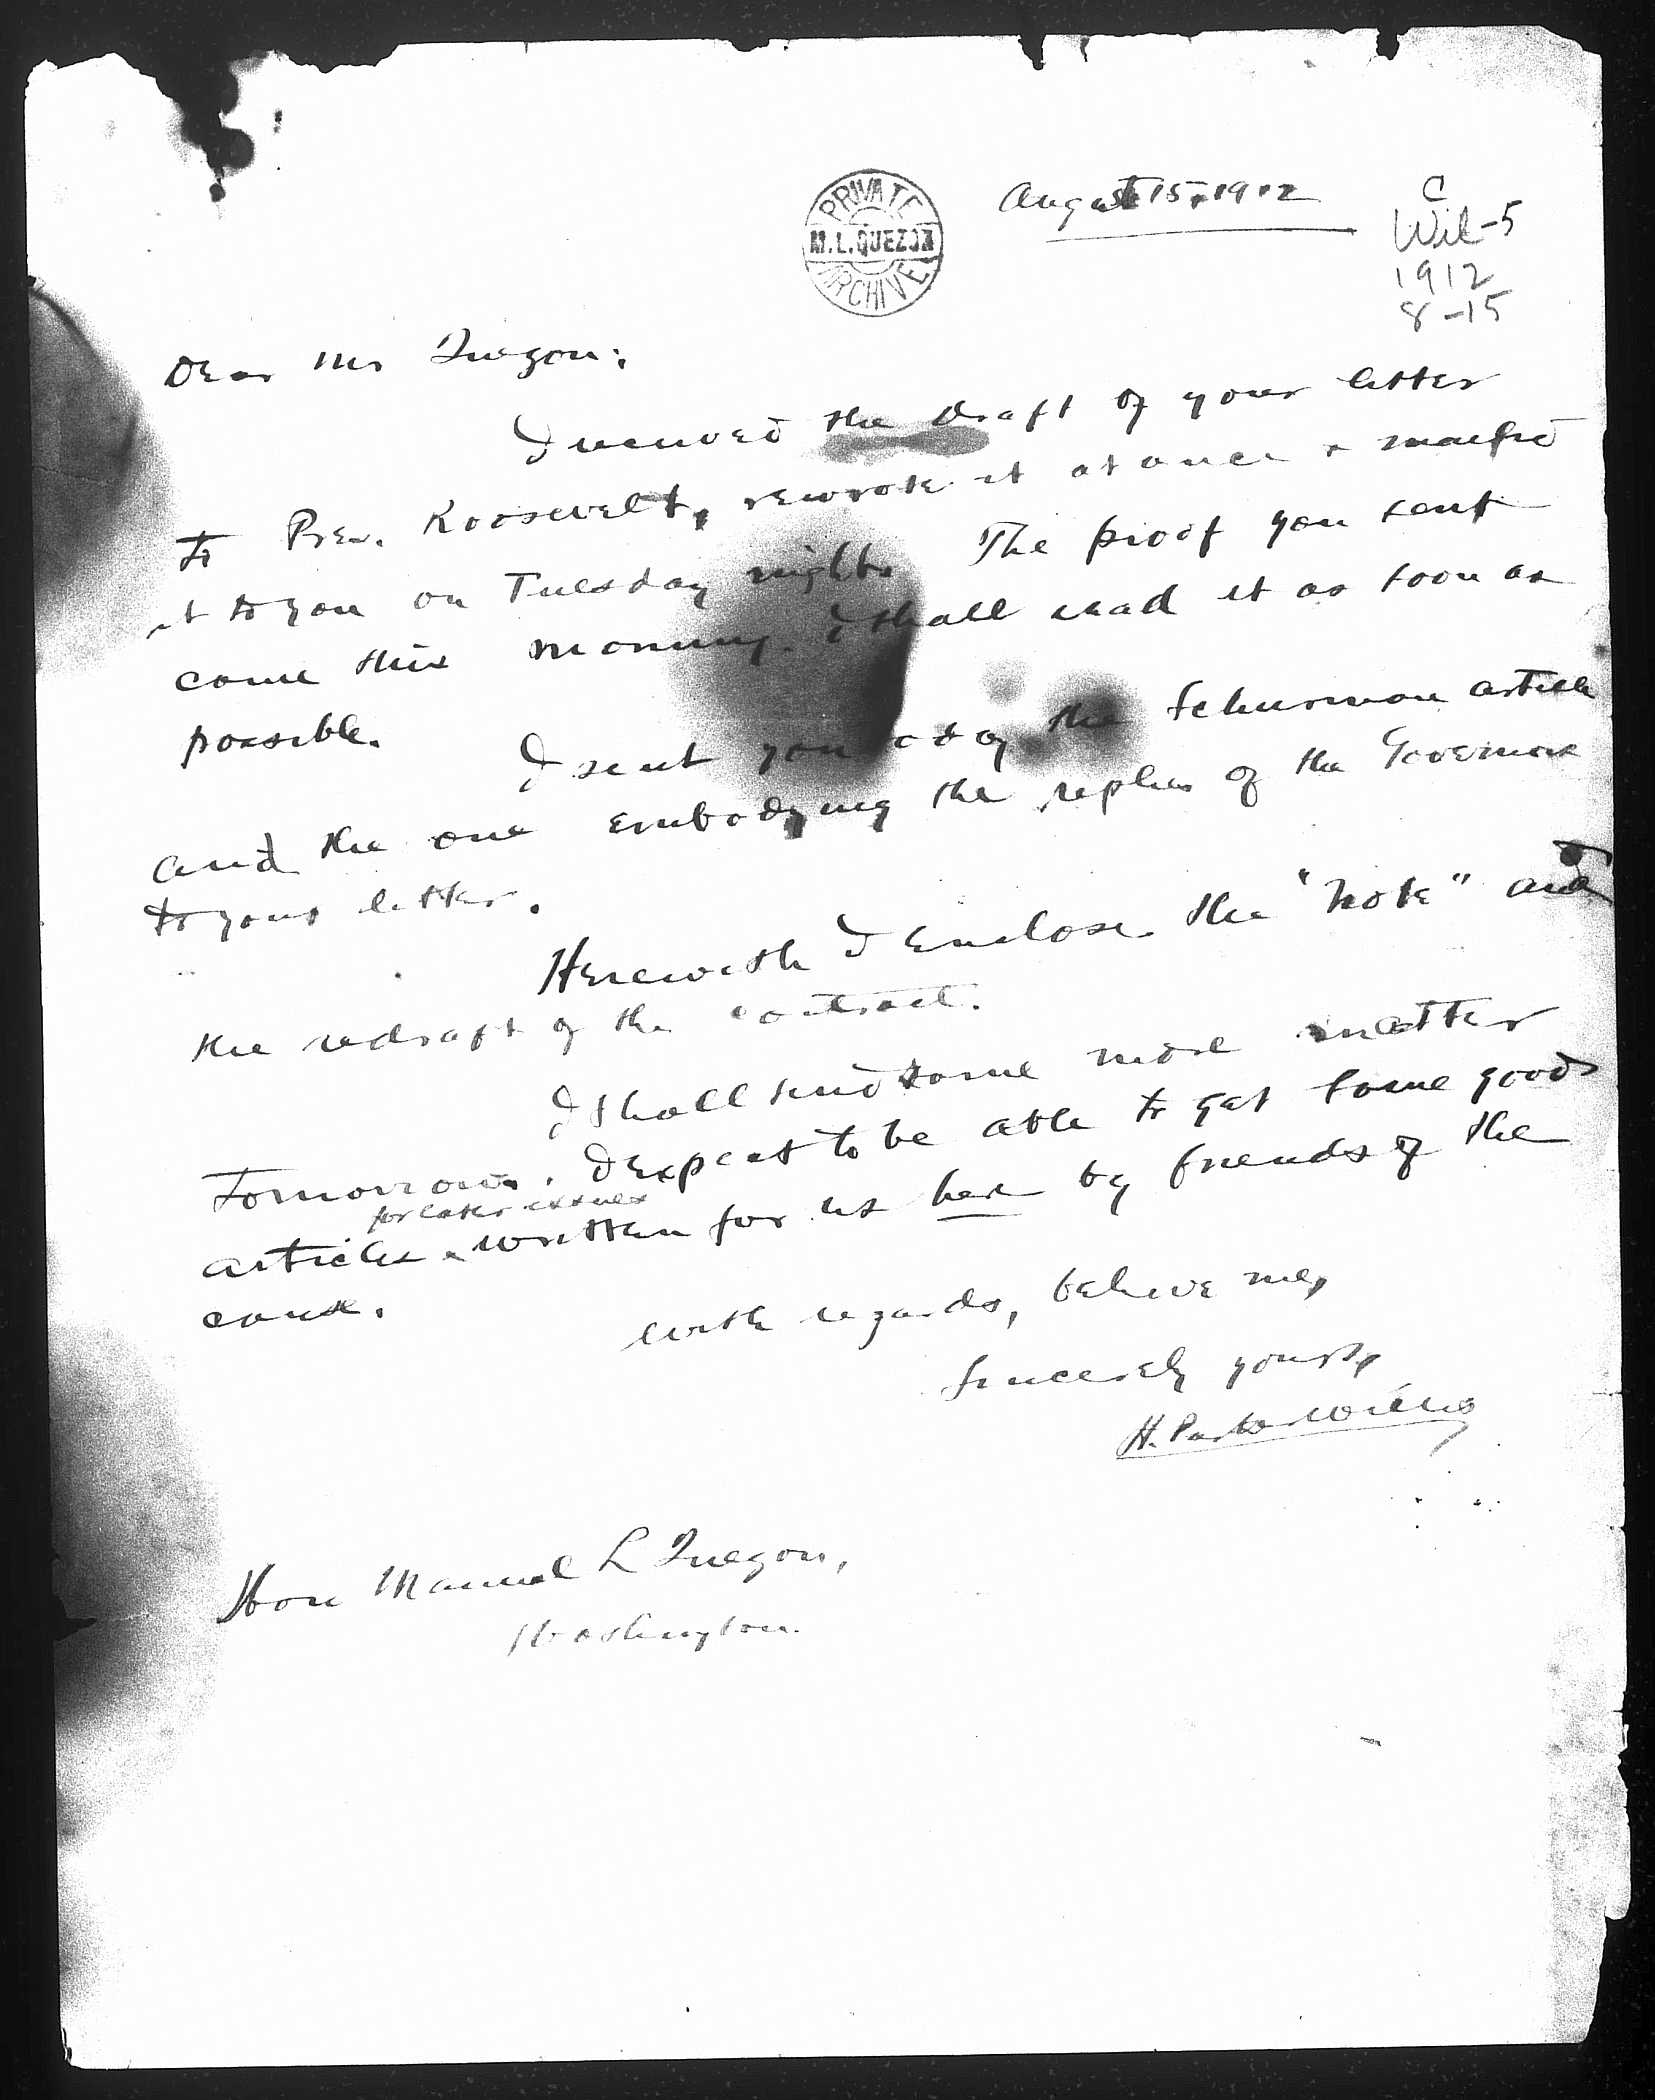 August 15, 1912
C
Wil-5
1912
8-15
PRIVATE
M.L.QUEZON
ARCHIVE
Dear Mr Quezon:
I received the draft of your letter
to Pres. Roosevelt, rewrote it at once & mailed
it to you on Tuesday night. The proof you sent
came this morning. I shall read it as soon as
possible.
I sent you today the Schurman article
and the one embodying the replies of the Governors
to your letter.
Herewith I enclose the "Note" and
the redraft of the contract.
I shall send some more matter
tomorrow. I expect to be able to get some good
for later issues
articles written for us here by friends of the
cause.
With regards, believe me,
Sincerely yours,
H. Parker Willis
Hon Manuel L Quezon,
Washington.